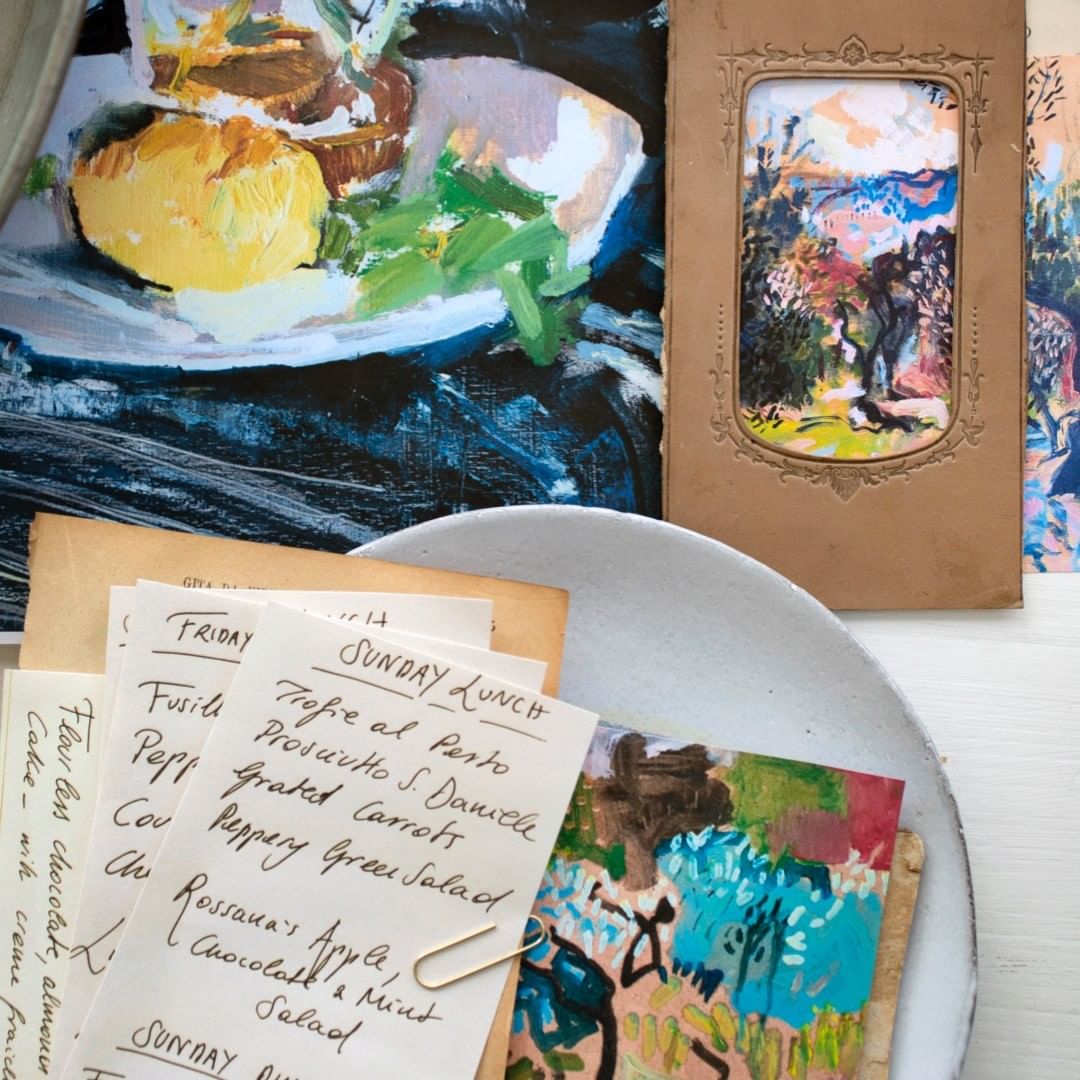 GITA
FRIDAY
Fusill
Pepp
Cou
SUNDAY LUNCH
Trofie al Pesto
Prosciutto S. Daniele
Grated Carrots
Peppery Green Salad
Rossana's Apple,
Chocolate & Mint
Salad
SUNDAY
Flourless chocolate, almond
Cake - with creme fraiche